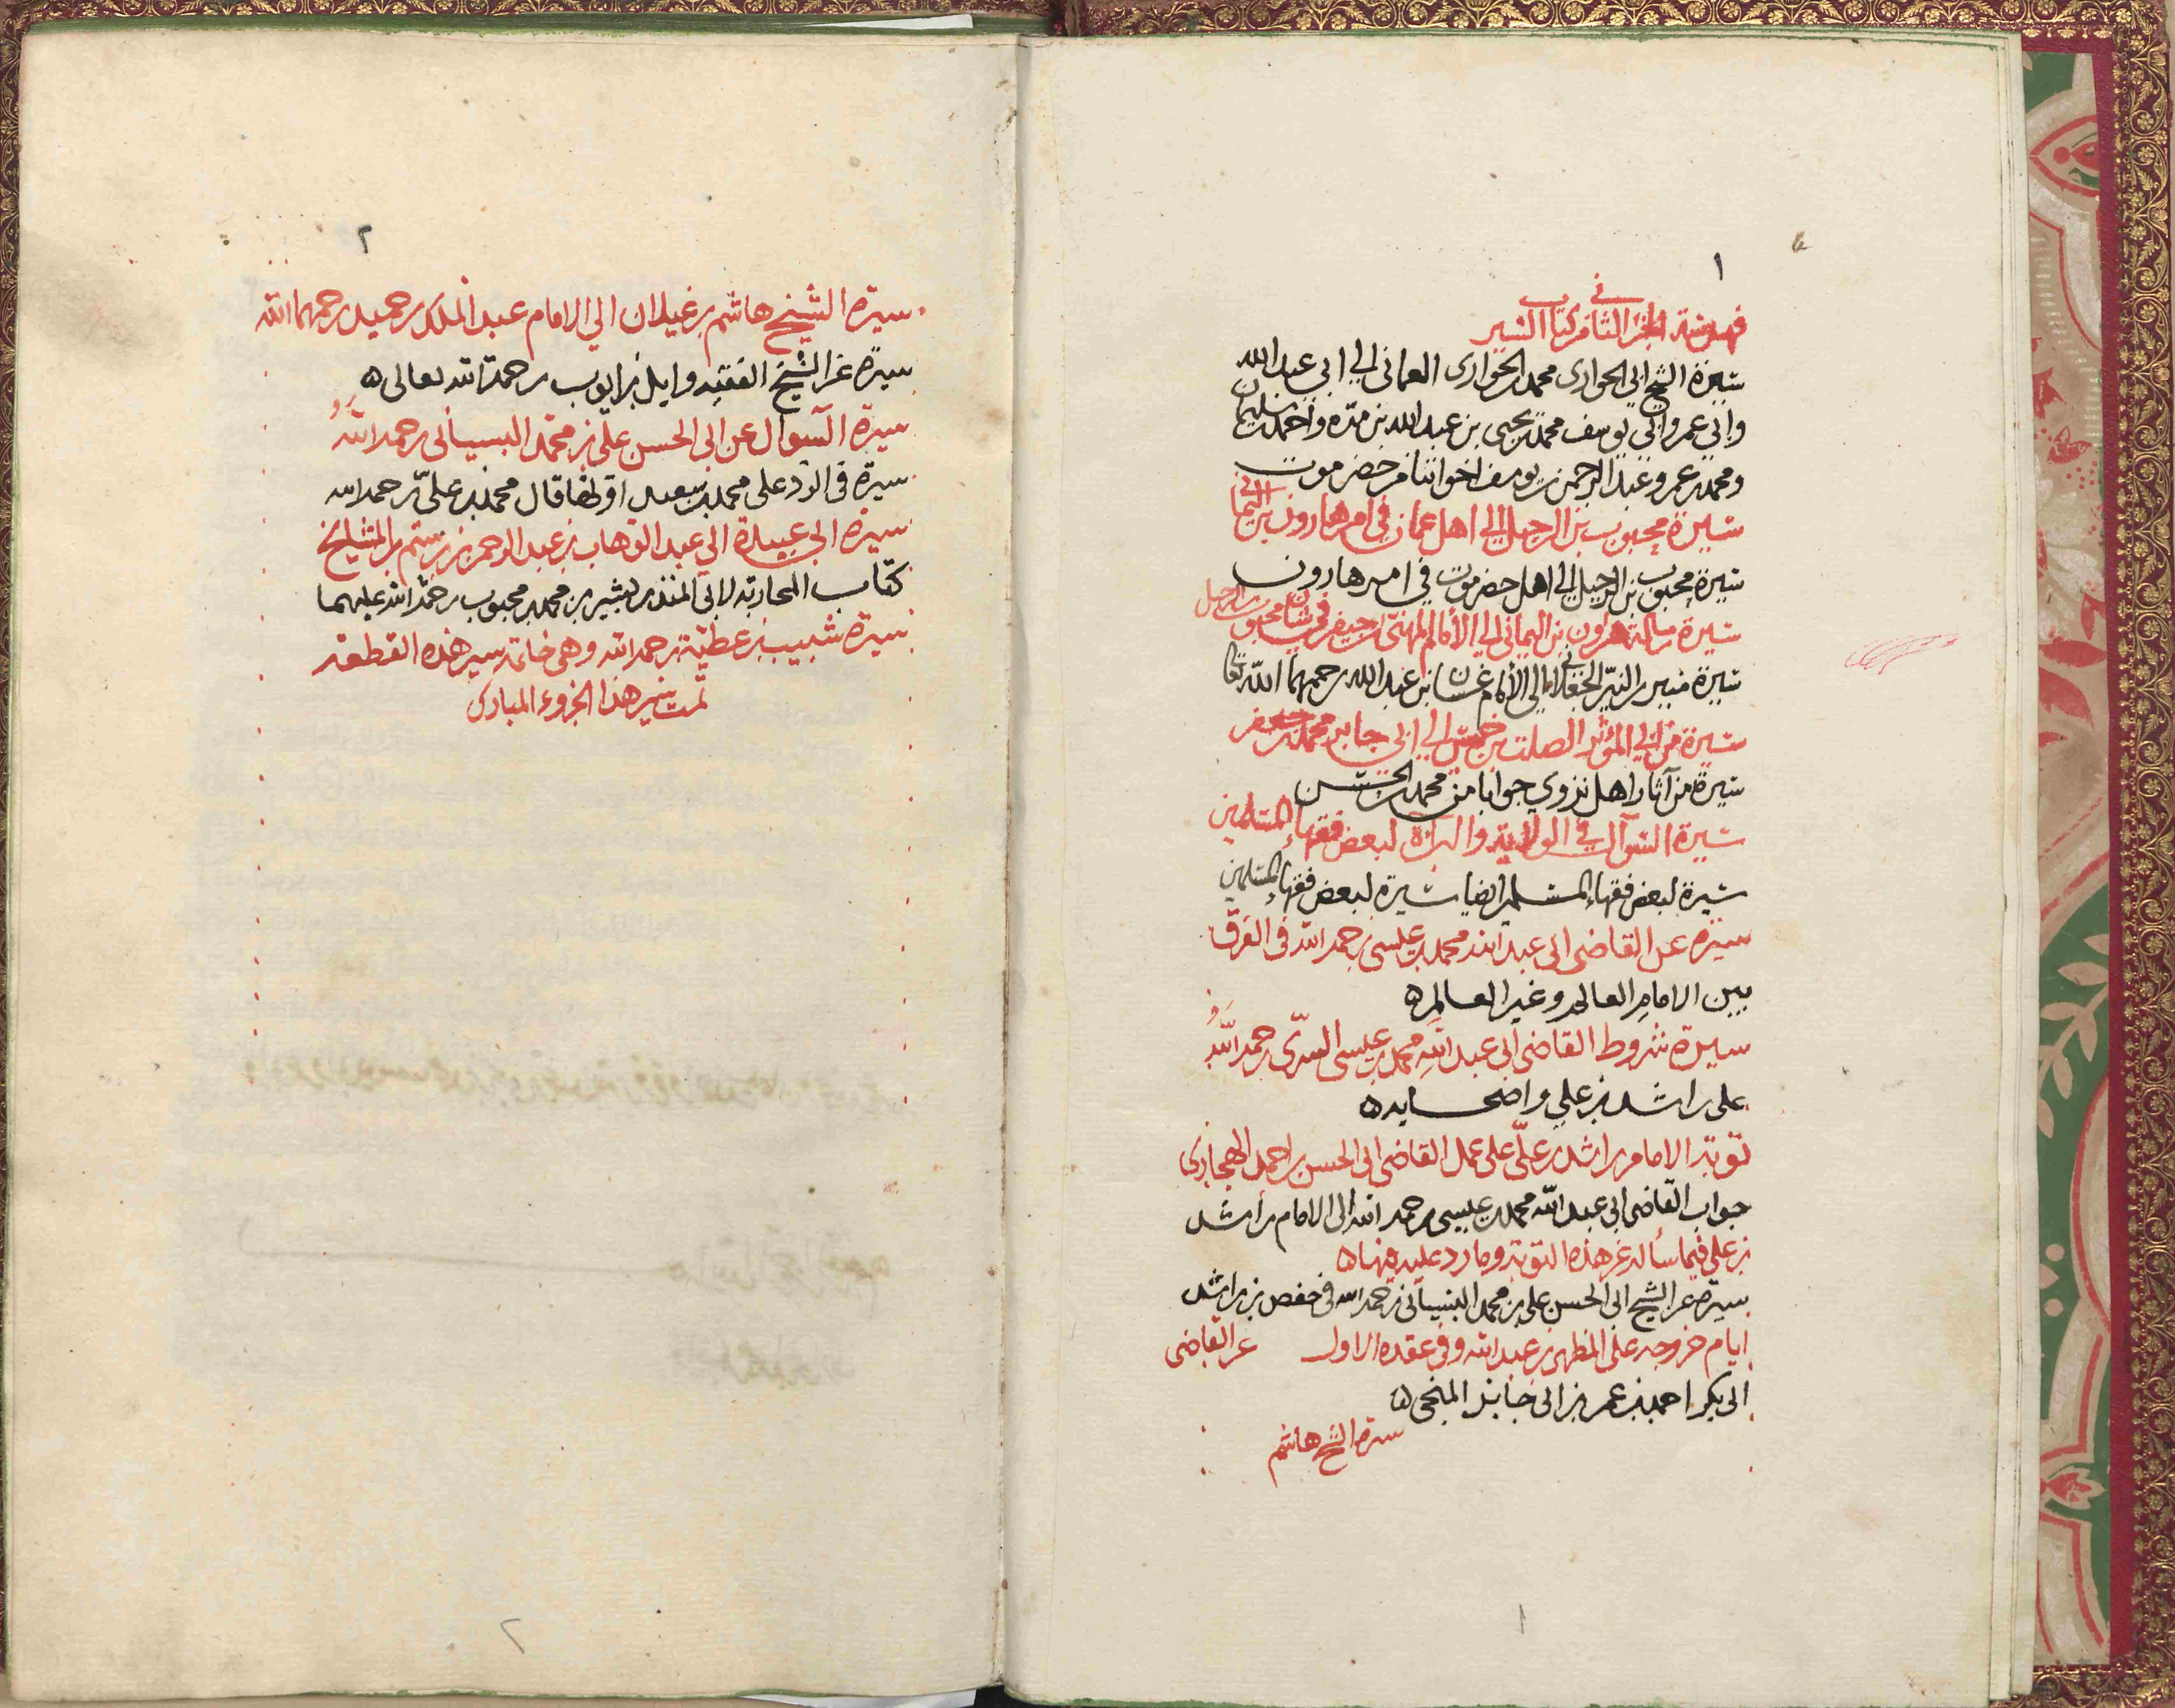 ١
فهرسة الجزء الثاني من كتاب السير
سيرة الشيخ ابي الحواري محمد بن الحواري العماني الي ابي عبدالله
وابي عمر وابي يوسف محمد بن يحيى بن عبدالله بن مرّة واحمد بن سليمان
ومحمد بن عمر وعبد الرحمن بن يوسف اخواننا من حضرموت
سيرة محبوب بن الرحيل الي اهل عمان في امر هارون بن اليماني
سيرة محبوب بن الرحيل الي اهل حضرموت في امر هارون
سيرة رسالة هارون بن اليماني الي الأمام المهنّى بن جيفر في شان محبوب بن الرحيل
سيرة منير بن النيّر الجعلاني الي الأمام غسان بن عبدالله رحمهما الله تعالى
سيرة من ابي المؤثر الصلت بن خميس الي ابي جابر محمد بن جعفر
سيرة من آثار اهل نزوي جوابا من محمد بن الحسن
سيرة السوآل في الولاية والبرآة لبعض فقهاء المسلمين
سيرة لبعض فقهاء المسلمين ايضا سيرة لبعض فقهاء المسلمين
سيرة عن القاضي ابي عبد الله محمد بن عيسى رحمه الله في الفرق
بين الامام العالم وغير العالم ه
سيرة شروط القاضي ابي عبد الله محمد بن عيسى السرّي رحمه اللهُ
على راشد بن علي واصحابه ه
توبة الامام راشد بن علّي على عمل القاضي ابي الحسن بن احمد الهجاري
جواب القاضي ابي عبد الله محمد بن عيسى رحمه الله الى الامام راشد
بن علي فيما سأله عن هذه التوبة وما رد عليه فيها ه
سيرة عن الشيخ ابي الحسن علي بن محمد البسياني رحمه الله في حفص بن راشد
ايام خروجه على المطهر بن عبد الله وفي عقده الاول عن القاضي
ابي بكر احمد بن عمر بن ابي جابر المنحي ه
سيرة الشيخ هاشم
١
٢
سيرة الشيخ هاشم بن غيلان الي الامام عبد الملك بن حميد رحمهما الله
سيرة عن الشيخ الفقيه وايل بن ايوب رحمة الله تعالى ه
سيرة السوآل عن ابي الحسن علي بن محمّد البسياني رحمه اللهُ
سيرة في الرّد على محمد بن سعيد اولها قال محمد بن عليّ رحمه الله
سيرة ابي عبيدة الي عبد الوهاب بن عبد الرحمن بن رستم بن المشايخ
كتاب المحاربة لابي المنذر بشير بن محمد بن محبوب رحمة الله عليهما
سيرة شبيب بن عطيّة رحمه الله وهي خاتمة سير هذه القطعة
تمت سير هذا الجزوء المبارك
٢